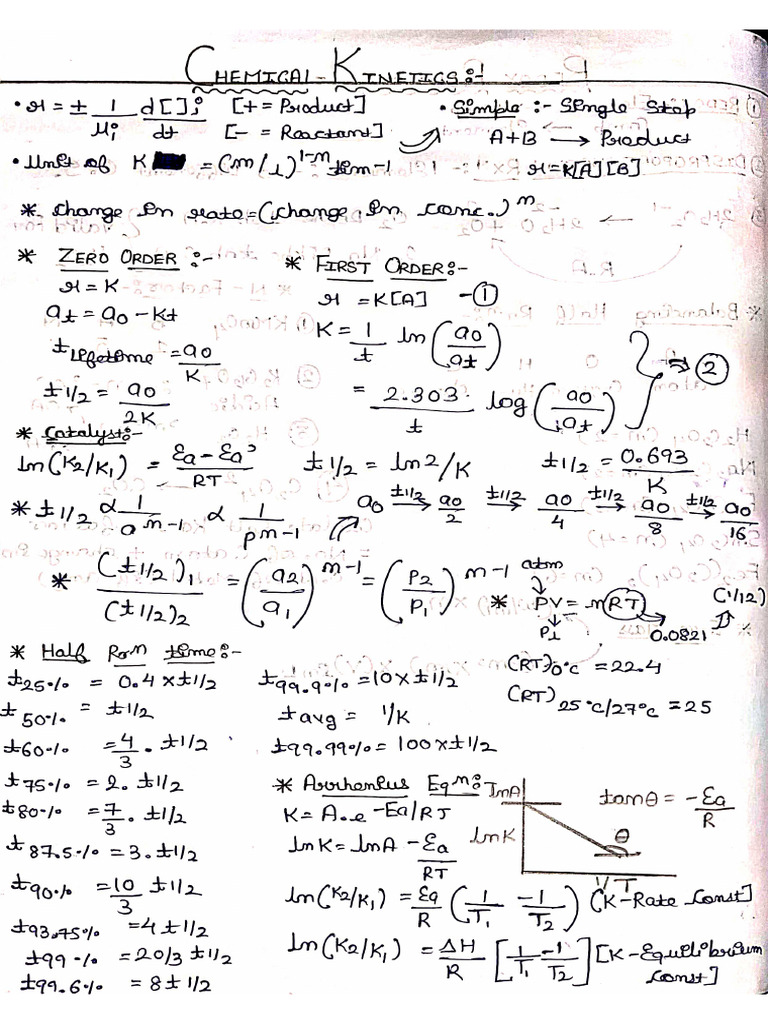 CHEMICAL-KINETICS:-
• r = ± 1/μi d[ ]i/dt [+ = Product] [- = Reactant]
• Simple :- Single Step
A+B → Product
r=K[A][B]
• Unit of K = (m/L)^1-n time^-1
* Change in rate = (change in conc.)^n
* ZERO ORDER :-
r = K
at = a0 - Kt
t lifetime = a0/K
t1/2 = a0/2K
* FIRST ORDER:-
r = K[A] - ①
K = 1/t ln(a0/at)
= 2.303/t log(a0/at) } → ②
* Catalyst:-
ln(K2/K1) = Ea - Ea'/RT
t1/2 = ln2/K
t1/2 = 0.693/K
* t1/2 ∝ 1/a^n-1 ∝ 1/p^n-1
a0 →t1/2 a0/2 →t1/2 a0/4 →t1/2 a0/8 →t1/2 a0/16
* (t1/2)1/(t1/2)2 = (a2/a1)^n-1 = (P2/P1)^n-1
* PV = nRT
atm
0.0821
(1/12)
(RT)0°C = 22.4
(RT)25°C/27°C = 25
* Half Rxn time:-
t25% = 0.4 × t1/2
t50% = t1/2
t60% = 4/3 . t1/2
t75% = 2. t1/2
t80% = 7/3 . t1/2
t87.5% = 3. t1/2
t90% = 10/3 t1/2
t93.75% = 4 t1/2
t99% = 20/3 t1/2
t99.6% = 8 t1/2
t99.9% = 10 × t1/2
t avg = 1/K
t99.99% = 100 × t1/2
* Arrhenius Eqn:
K = A.e^-Ea/RT
lnK = lnA - Ea/RT
lnA
lnK
θ
1/T
tanθ = -Ea/R
ln(K2/K1) = Ea/R (1/T1 - 1/T2) (K-Rate Const]
ln(K2/K1) = ΔH/R [1/T1 - 1/T2] [K-Equilibrium Const]